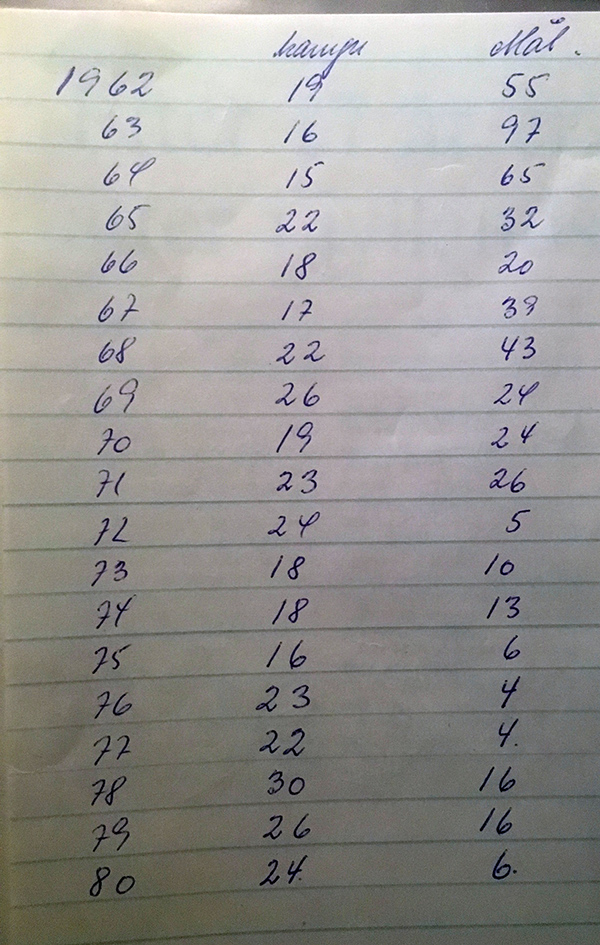 Kamper Mål.
1962 19 55
63 16 97
64 15 65
65 22 32
66 18 20
67 17 39
68 22 43
69 26 24
70 19 24
71 23 26
72 24 5
73 18 10
74 18 13
75 16 6
76 23 4
77 22 4.
78 30 16
79 26 16
80 24. 6.